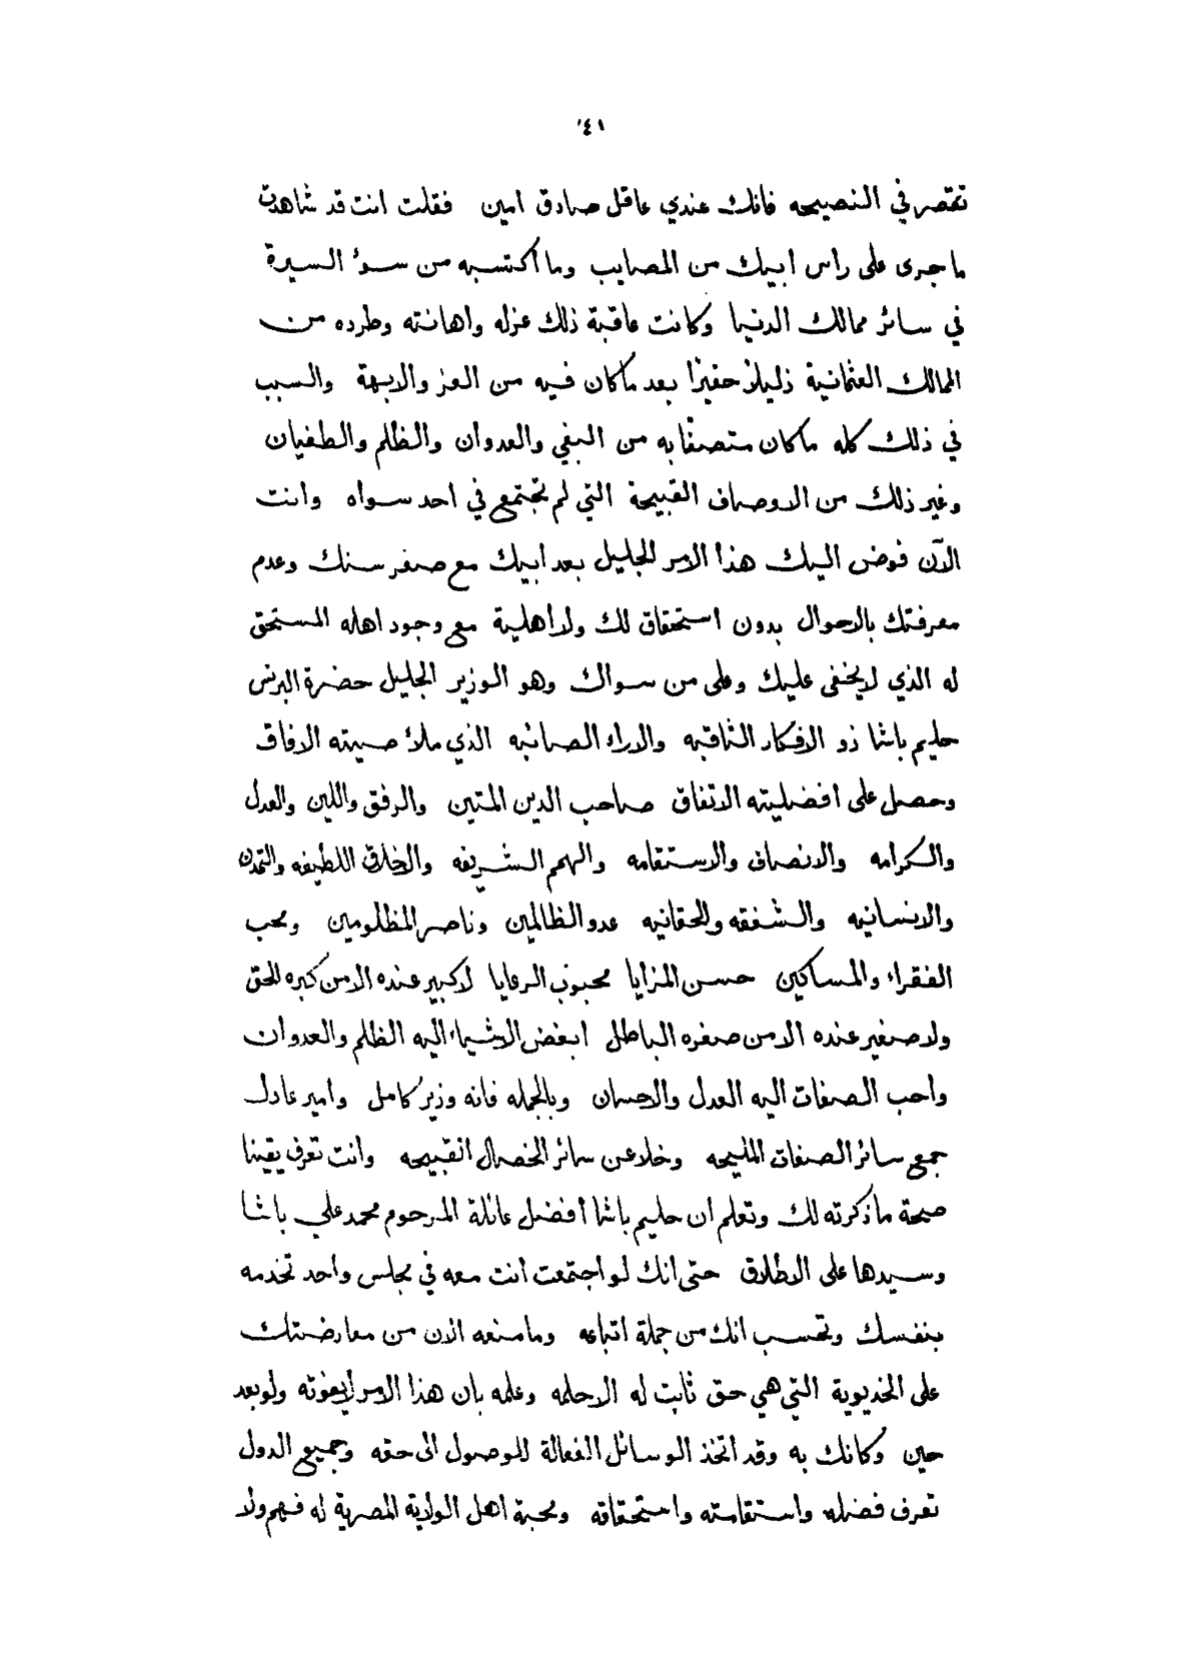 ١٤١
تقصر في النصيحه فانك عندي عاقل صادق امين فقلت انت قد شاهدت
ما جرى على راس ابيك من المصايب وما اكتسبه من سوء السيرة
في سائر ممالك الدنيا وكانت عاقبة ذلك عزله واهانته وطرده من
الممالك العثمانية ذليلاً حقيرًا بعد ما كان فيه من العز والابهة والسبب
في ذلك كله ما كان متصفا به من البغي والعدوان والظلم والطغيان
وغير ذلك من الاوصاف القبيحة التي لم تجتمع في احد سواه وانت
الآن فوض اليك هذا الامر الجليل بعد ابيك مع صغر سنك وعدم
معرفتك بالاحوال بدون استحقاق لك ولا أهلية مع وجود اهله المستحق
له الذي لا يخفى عليك وعلى من سواك وهو الوزير الجليل حضرة البرنس
حليم باشا ذو الافكار الثاقبه والاراء الصائبه الذي ملأ صيته الافاق
وحصل على افضليته الاتفاق صاحب الدين المتين والرفق واللين والعدل
والكرامه والانصاف والاستقامه والهمم الشريفه والاخلاق اللطيفه والتمدن
والانسانيه والشفقه والحقانيه عدو الظالمين وناصر المظلومين ومحب
الفقراء والمساكين حسن المزايا محبوب الرعايا لا كبير عنده الا من كبره الحق
ولا صغير عنده الا من صغره الباطل ابغض الاشياء اليه الظلم والعدوان
وأحب الصفات اليه العدل والاحسان وبالجمله فانه وزير كامل وامير عادل
جمع سائر الصفات المليحه وخلا عن سائر الخصال القبيحه وانت تعرف يقينا
صحة ما ذكرته لك وتعلم ان حليم باشا أفضل عائلة المرحوم محمد علي باشا
وسيدها على الاطلاق حتى انك لو اجتمعت انت معه في مجلس واحد تخدمه
بنفسك وتحسب انك من جملة اتباعه وما منعه الان من معارضتك
على الخديوية التي هي حق ثابت له الا حلمه وعلمه بان هذا الامر لا يفوته ولو بعد
حين وكانك به وقد اتخذ الوسائل الفعالة للوصول الى حقه وجميع الدول
تعرف فضله واستقامته واستحقاقه ومحبة اهل الولاية المصرية له فهم ولا